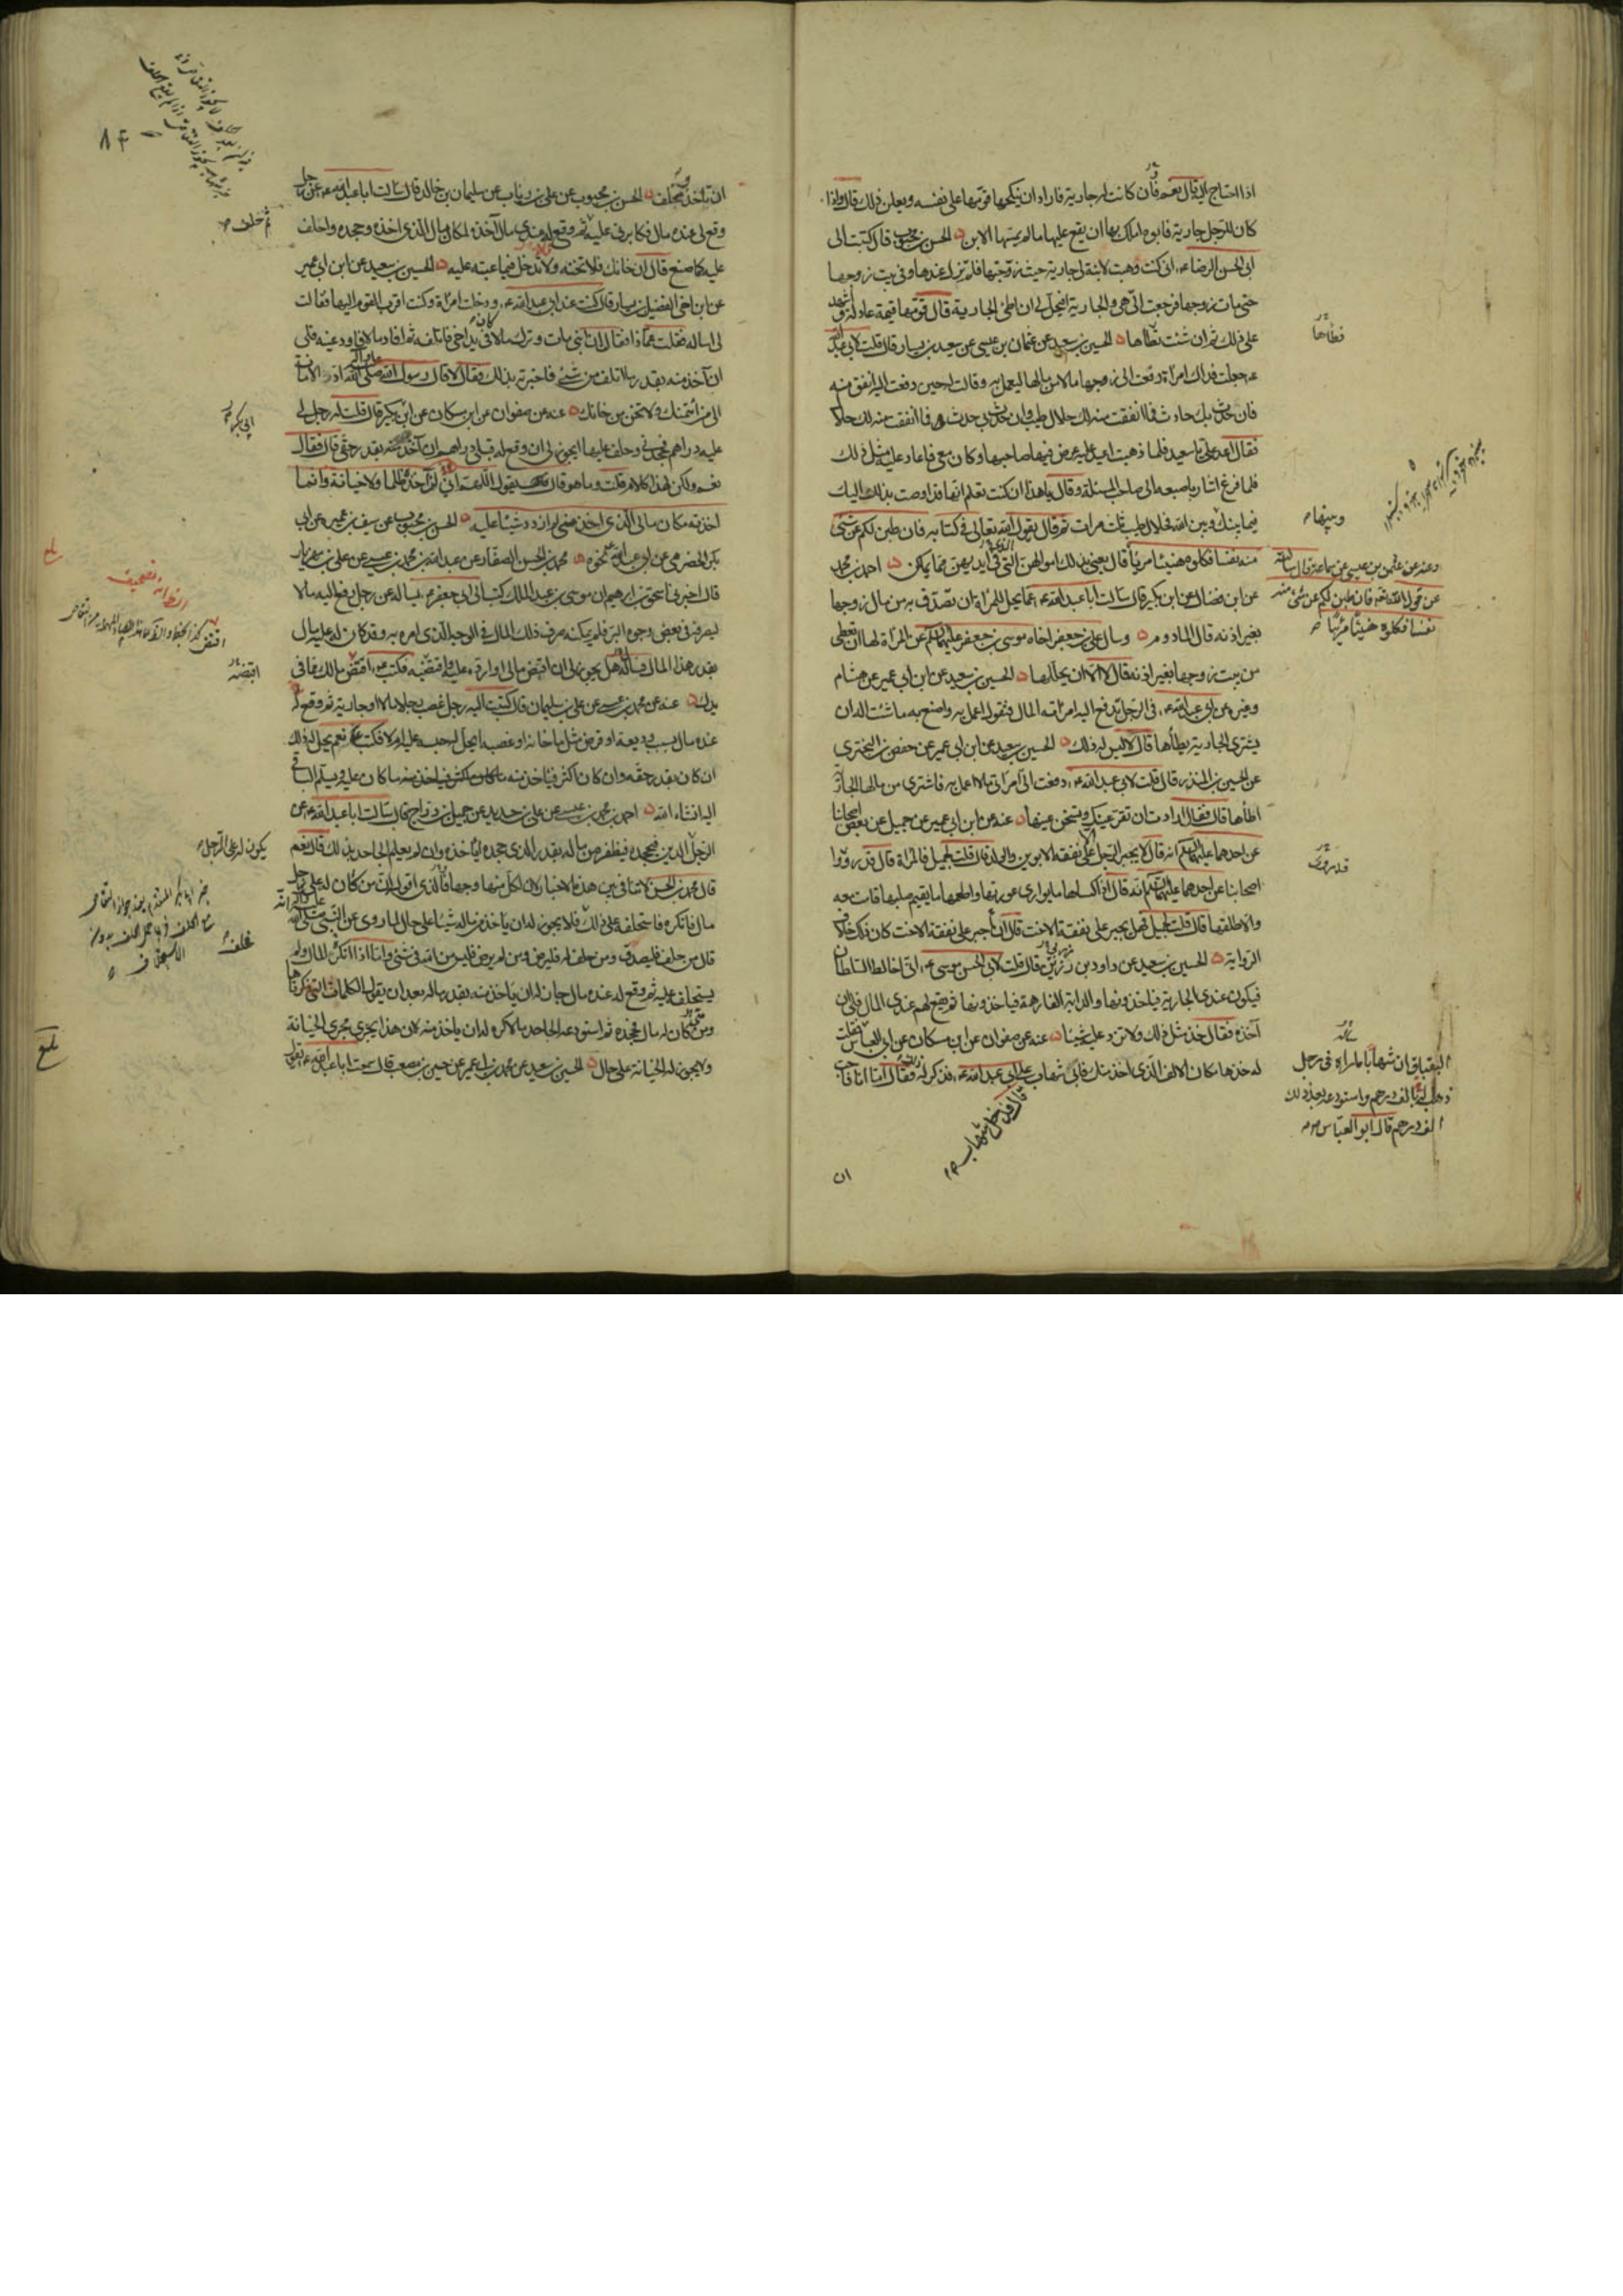 اذا احتاج اليه قال نعم فان كانت له جارية فاراد ان ينكحها قومها على نفسه ويعلن ذلك قال واذا
كان للرجل جارية فابوه املك بها ان يقع عليها ما لم يمسها الابن الحسن بن محبوب قال كتبت الى
ابى الحسن الرضا ء انى كنت وهبت لابنة لى جارية حيث زوجتها فلم تزل عندها وفى بيت زوجها
حتى مات زوجها فرجعت الىّ هى والجارية افيحل لى ان اطئ الجارية قال قومها قيمة عادلة واشهد
على ذلك ثم ان شئت تطأها الحسين بن سعيد عن عثمان بن عيسى عن سعيد بن يسار قال قلت لابى عبد الله
ء جعلت فداك امرأة دفعت الى زوجها مالا من مالها ليعمل به وقالت له حين دفعت اليه انفق منه
فان حدث بك حادث فما انفقت منه لك حلال طيب وان حدث بى حدث فما انفقت منه لك حلال
فقال اعد علىّ يا سعيد فلما ذهبت اعيد عليه عرض فيها صاحبها وكان معى فاعاد عليه مثل ذلك
فلما فرغ اشار باصبعه الى صاحب المسئلة وقال يا هذا ان كنت تعلم انها قد اوصت بذلك اليك
فيما بينك وبين الله فحلال طيب ثلث مرات ثم قال يقول الله تعالى فى كتابه فان طبن لكم عن شئ
منه نفسا فكلوه هنيئا مريئا قال يعنى بذلك اموالهن التى فى ايديهن مما يملكن احمد بن محمد
عن ابن فضال عن ابن بكير قال سالت ابا عبد الله ء عما يحل للمرأة ان تصدق به من مال زوجها
بغير اذنه قال المادوم وسال على بن جعفر اخاه موسى بن جعفر عليهما السلم عن المرأة لها ان تعطى
من بيت زوجها بغير اذنه قال لا الا ان يحللها الحسين بن سعيد عن ابن ابى عمير عن هشام
وغيره عن ابى عبد الله ء فى الرجل تدفع اليه امراته المال فتقول اعمل به واصنع به ما شئت اله ان
يشترى الجارية يطأها قال لا ليس له ذلك الحسين بن سعيد عن ابن ابى عمير عن حفص بن البخترى
عن الحسين بن المنذر قال قلت لابى عبد الله ء دفعت الىّ امراتى مالا اعمل به فاشترى من مالها الجارية
اطأها قال فقال ارادت ان تقر عينك وتسخن عينها عنه عن ابن ابى عمير عن جميل عن بعض اصحابنا
عن احدهما عليهما السلم انه قال لا يجبر الرجل الا على نفقة الابوين والولد قال قلت لجميل فالمرأة قال قد رووا
اصحابنا عن احدهما عليهما السلم انه قال اذا كساها ما يوارى عورتها واطعمها ما يقيم صلبها اقامت معه
والا طلقها قال قلت لجميل فهل يجبر على نفقة الاخت قال ان اجبر على نفقة الاخت كان ذلك خلاف
الرواية الحسين بن سعيد عن داود بن رزين قال قلت لابى الحسن موسى ء انى اخالط السلطان
فيكون عندى الجارية فياخذونها والدابة الفارهة فياخذونها ثم يقع لهم عندى المال فلى ان
آخذه فقال خذ مثل ذلك ولا تزد عليه شيئا عنه عن صفوان عن ابن مسكان عن ابى العباس
له خذها مكان الالف الذى اخذ منك فابى شهاب على ابى عبد الله ء فذكر له ذلك فقال اما انا فاحب
ان
فتطأها
وبينها
وعنه عن عثمن بن عيسى عن سماعة قال سالته
عن قول الله تعه فان طبن لكم عن شئ منه
نفسا فكلوه هنيئا مريئا
قد روى
البقباق ان شهابا ماراه فى رجل
ذهب له بالف درهم واستودعه بعد ذلك
الف درهم قال ابو العباس
قال فدخل شهاب
ان تاخذ وتحلف الحسن بن محبوب عن على بن رئاب عن سليمان بن خالد قال سالت ابا عبد الله ء عن رجل
وقع لى عنده مال فكابرنى عليه ثم وقع له عندى مال آخذه لمكان مالى الذى اخذه وجحده واحلف
عليه كما صنع قال ان خانك فلا تخنه ولا تدخل فيما عبته عليه الحسين بن سعيد عن ابن ابى عمير
عن ابن اخى الفضيل بن يسار قال كنت عند ابى عبد الله ء ودخلت امرأة وكنت اقرب القوم اليها فقالت
لى اساله فقلت عماذا فقالت ان ابنى مات وترك مالا كان فى يد اخى فاتلفه ثم افاد مالا فاودعنيه فلى
ان آخذ منه بقدر ما اتلف من شئ فاخبرته بذلك فقال لا قال رسول الله صلى الله عليه وآله اد الامانة
الى من ائتمنك ولا تخن من خانك عنه عن صفوان عن ابن مسكان عن ابى بكر قال قلت له رجل لى
عليه دراهم فجحدنى وحلف عليها ايجوز لى ان وقع له قبلى دراهم ان آخذ منه بقدر حقى قال فقال
نعم ولكن لهذا كلام قلت وما هو قال يقول اللهم انى لم آخذه ظلما ولا خيانة وانما
اخذته مكان مالى الذى اخذ منى لم ازدد شيئا عليه الحسن بن محبوب عن سيف بن عميرة عن ابى
بكر الحضرمى عن ابى عبد الله ء نحوه محمد بن الحسن الصفار عن عبد الله بن محمد بن عيسى عن على بن مهزيار
قال اخبرنى اسحق بن ابرهيم ان موسى بن عبد الملك كتب الى ابى جعفر ء يساله عن رجل دفع اليه مالا
ليصرفه فى بعض وجوه البر فلم يمكنه صرف ذلك المال فى الوجه الذى امره به وقد كان له عليه مال
بقدر هذا المال فساله هل يجوز لى ان اقبض مالى او ارده عليه واقتضيه فكتب ء اقبض مالك مما فى
يدك عنه عن محمد بن عيسى عن على بن سليمان قال كتبت اليه رجل غصب رجلا مالا او جارية ثم وقع له
عنده مال بسبب وديعة او قرض مثل ما خانه او غصبه ايحل له حبسه عليه ام لا فكتب ء نعم يحل له ذلك
ان كان بقدر حقه وان كان اكثر فياخذ منه ما كان عليه ويسلم الباقى
اليه ان شاء الله احمد بن محمد بن عيسى عن على بن حديد عن جميل بن دراج قال سالت ابا عبد الله ء عن
الرجل الدين فيجحده فيظفر من ماله بقدر الذى جحده اياخذه وان لم يعلم الجاحد بذلك قال نعم
قال محمد بن الحسن لا تنافى بين هذه الاخبار لان لكل منها وجها فالذى اقول ان من كان له على رجل
مال فانكره فاستحلفه على ذلك فلا يجوز له ان ياخذ من ماله شيئا على حال لما روى عن النبى صلى الله عليه وآله انه
قال من حلف فليصدق ومن حلف له فليرض ومن لم يرض فليس من الله فى شئ واما اذا انكر المال ولم
يستحلفه عليه ثم وقع له عنده مال جاز له ان ياخذ منه بقدر ماله بعد ان يقول الكلمات التى ذكرناها
ومتى كان له مال فجحده ثم استودعه الجاحد مالا كره له ان ياخذ منه لان هذا يجرى مجرى الخيانة
ولا يجوز له الخيانة على حال الحسين بن سعيد عن محمد بن ابى عمير عن حسين بن مصعب قال سمعت ابا عبد الله ء يقول
ثم حلف
ابى بكر
اقبضه
يكون له على الرجل